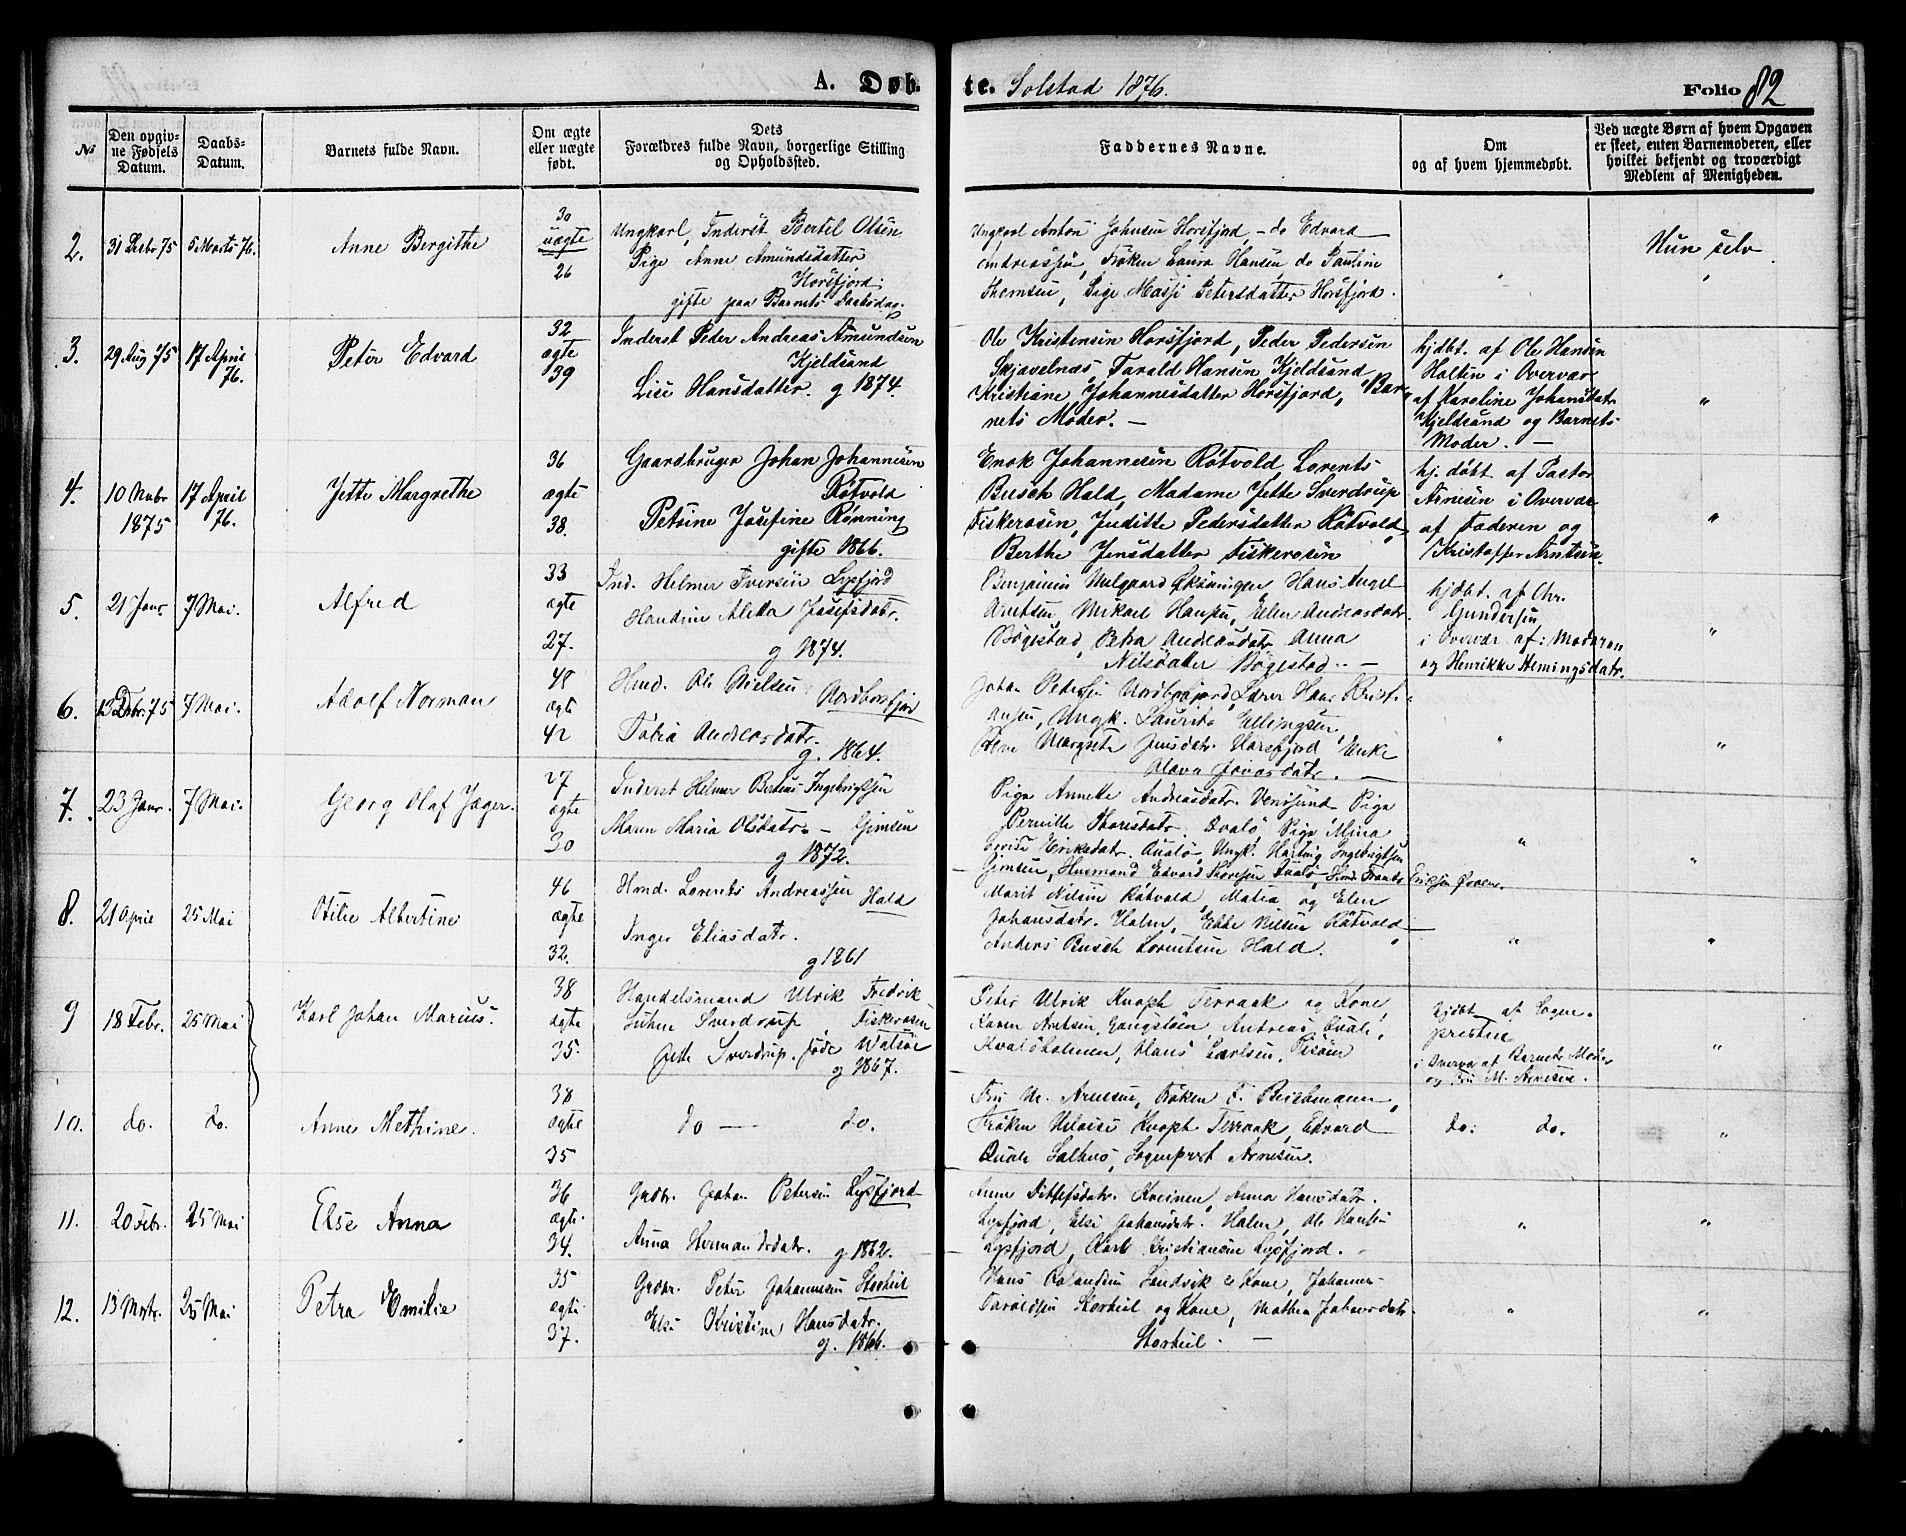 A. Døb
te. Solstad 1876.
Folio 82
№
Den opgiv-
ne Fødsels
Datum.
Daabs-
Datum.
Barnets fulde Navn.
Om ægte
eller uægte
født.
Dets
Forældres fulde Navn, borgerlige Stilling
og Opholdssted.
Faddernes Navne.
Om
og af hvem hjemmedøbt.
Ved uægte Børn af hvem Opgaven
er skeet, enten Barnemoderen, eller
hvilket bekjendt og troværdigt
Medlem af Menigheden.
2.
31 Decbr 75
5 Marts 76.
Anne Bergithe
30
uægte
26
Ungkarl, Inderst Bertel Olsen
Pige Anne Amundsdatter
Horsfjord
gifte paa Barnets Daabsdag.
Ungkarl Anton Johnsen Horsfjord - do Edvard
Andreassen, Frøken Laura Hansen, do Pauline
Thomsen, Pige Massi Petersdatter Horsfjord.
"
Hun selv
"
3.
29 Aug 75
17 April
76.
Peter Edvard
32
ægte
39
Inderst Peder Andreas Amundsen
Kjeldsand
Lise Hansdatter. g 1874.
Ole Kristensen Horsfjord, Peder Pedersen
Skjavelnæs, Farald Hansen Kjeldsand
Kristiane Johannesdatter Horsfjord, Bar-
nets Moder. -
hjdbt. af Ole Hansen
Holten i Overvær
af Karoline Johansdatr
Kjeldsand og Barnets
Moder. -
"
4.
10 Novbr
1875
17 April
76.
Jette Margrethe
36
ægte
38.
Gaardbruger Johan Johannesen
Røtvold
Petrine Josefine Rønning
gifte 1866.
Enok Johannesen Røtvold, Lorents
Busch Hald, Madame Jette Sverdrup
Fiskerosen, Juditte Pedersdatter Røtvold,
Berthe Jensdatter Fiskerosen
hj. døbt af Pastor
Arnesen i Overvær
af Faderen og
Kristoffer Arntsen.
"
5.
21 Janr.
7 Mai.
Alfred
33
ægte
27.
Ind. Helmer Iversen Lysfjord
Handrine Aletta Josefsdatr.
g 1874.
Benjamin Hansen Hans Angel
Arntsen, Mikael Hansen, Elen Andreasdatr.
Bøgestad, Petra Andreasdatr Anna
Nilsdatter Bøgestad. -
hjdbt. af Chr.
Gundersen
i Overvær af: Moderen
og Henrikke Hemingsdatr.
"
6.
13 Decbr. 75
7 Mai.
Adolf Norman
48
ægte
42
Hmd. Ole Nielsen Nordhorsfjord
Tobia Andreasdatr.
g. 1864.
Johan Pedersen Nordhorsfjord, Lærer Hans Kristi-
ansen, Ungk. Laurits Ellingsen,
Margrete Jensdatr. Horsfjord Enke
Olava Jonasdatr. -
"
"
7.
23 Janr.
7 Mai.
Georg Olaf Jæger.
27
ægte
30
Inderst Helmer Berteus Ingebrigtsen
Maren Maria Olsdatr. - Gimsen
g 1872.
Pige Annette Andreasdatr. Vensund Pige
Pernille Thorsdatr. Qvalø, Pige Mina
Eriksdatr. Qualø, Ungk. Hartvig Ingebrigtsen
Gimsen, Husmand Edvard Thorsen Qvalø, Frants Eriksen
"
"
8.
21 April
25 Mai
Otilie Albertine
46
ægte
32.
Hmd. Lorents Andreassen Hald
Inger Eliasdatr.
g 1861
Marit Nilsen Røtvold, Malia og Elen
Johansdatr. Halm, Ebbe Nilsen Røtvold
Anders Busch Lorentsen Hald.
"
"
9
18 Febr.
25 Mai
Karl Johan Marius.
38
ægte
35.
Handelsmand Ulrik Fredrik
Sverdrup, Fiskerosen
Jette Sverdrup. født Watsøe
g 1867.
Peter Ulrik Knoph Terraak og Kone,
Karen Arntsen Andreas Quale,
Kvaløholmen, Hans Carlsen,
hjdbt af Sogne-
presten
i Overvær af Barnets Moder
og Fru M. Arnesen.
"
10.
do.
do.
Anne Methine.
38
ægte
35
do - do.
Fru M. Arnesen, Frøken F. Beichmann,
Frøken Heloise Knoph Terraak, Edvard
Quale Salhus, Sogneprest Arnesen.
do. do.
"
11.
20 Febr.
25 Mai
Else Anna
36
ægte.
34.
Gdbr. Johan Petersen Lysfjord
Anna Hermandsdatr. g 1862.
Anne Ditlefsdatr. Kveinen, Anna Hansdatr.
Lysfjord, Else Johansdatr. Halm, Ole Hansen
Lysfjord, Karl Kristiansen Lysfjord.
"
"
12.
13 Marts.
25 Mai
Petra Emilie
35
ægte.
37.
Gdbr. Peter Johannesen Storheil
Else Kristine Hansdatr.
g. 1866.
Hans Rolandsen Sandvik & Kone, Johannes
Faroldsen Storheil og Kone, Mathea Johansdatr.
Storheil. -
"
"